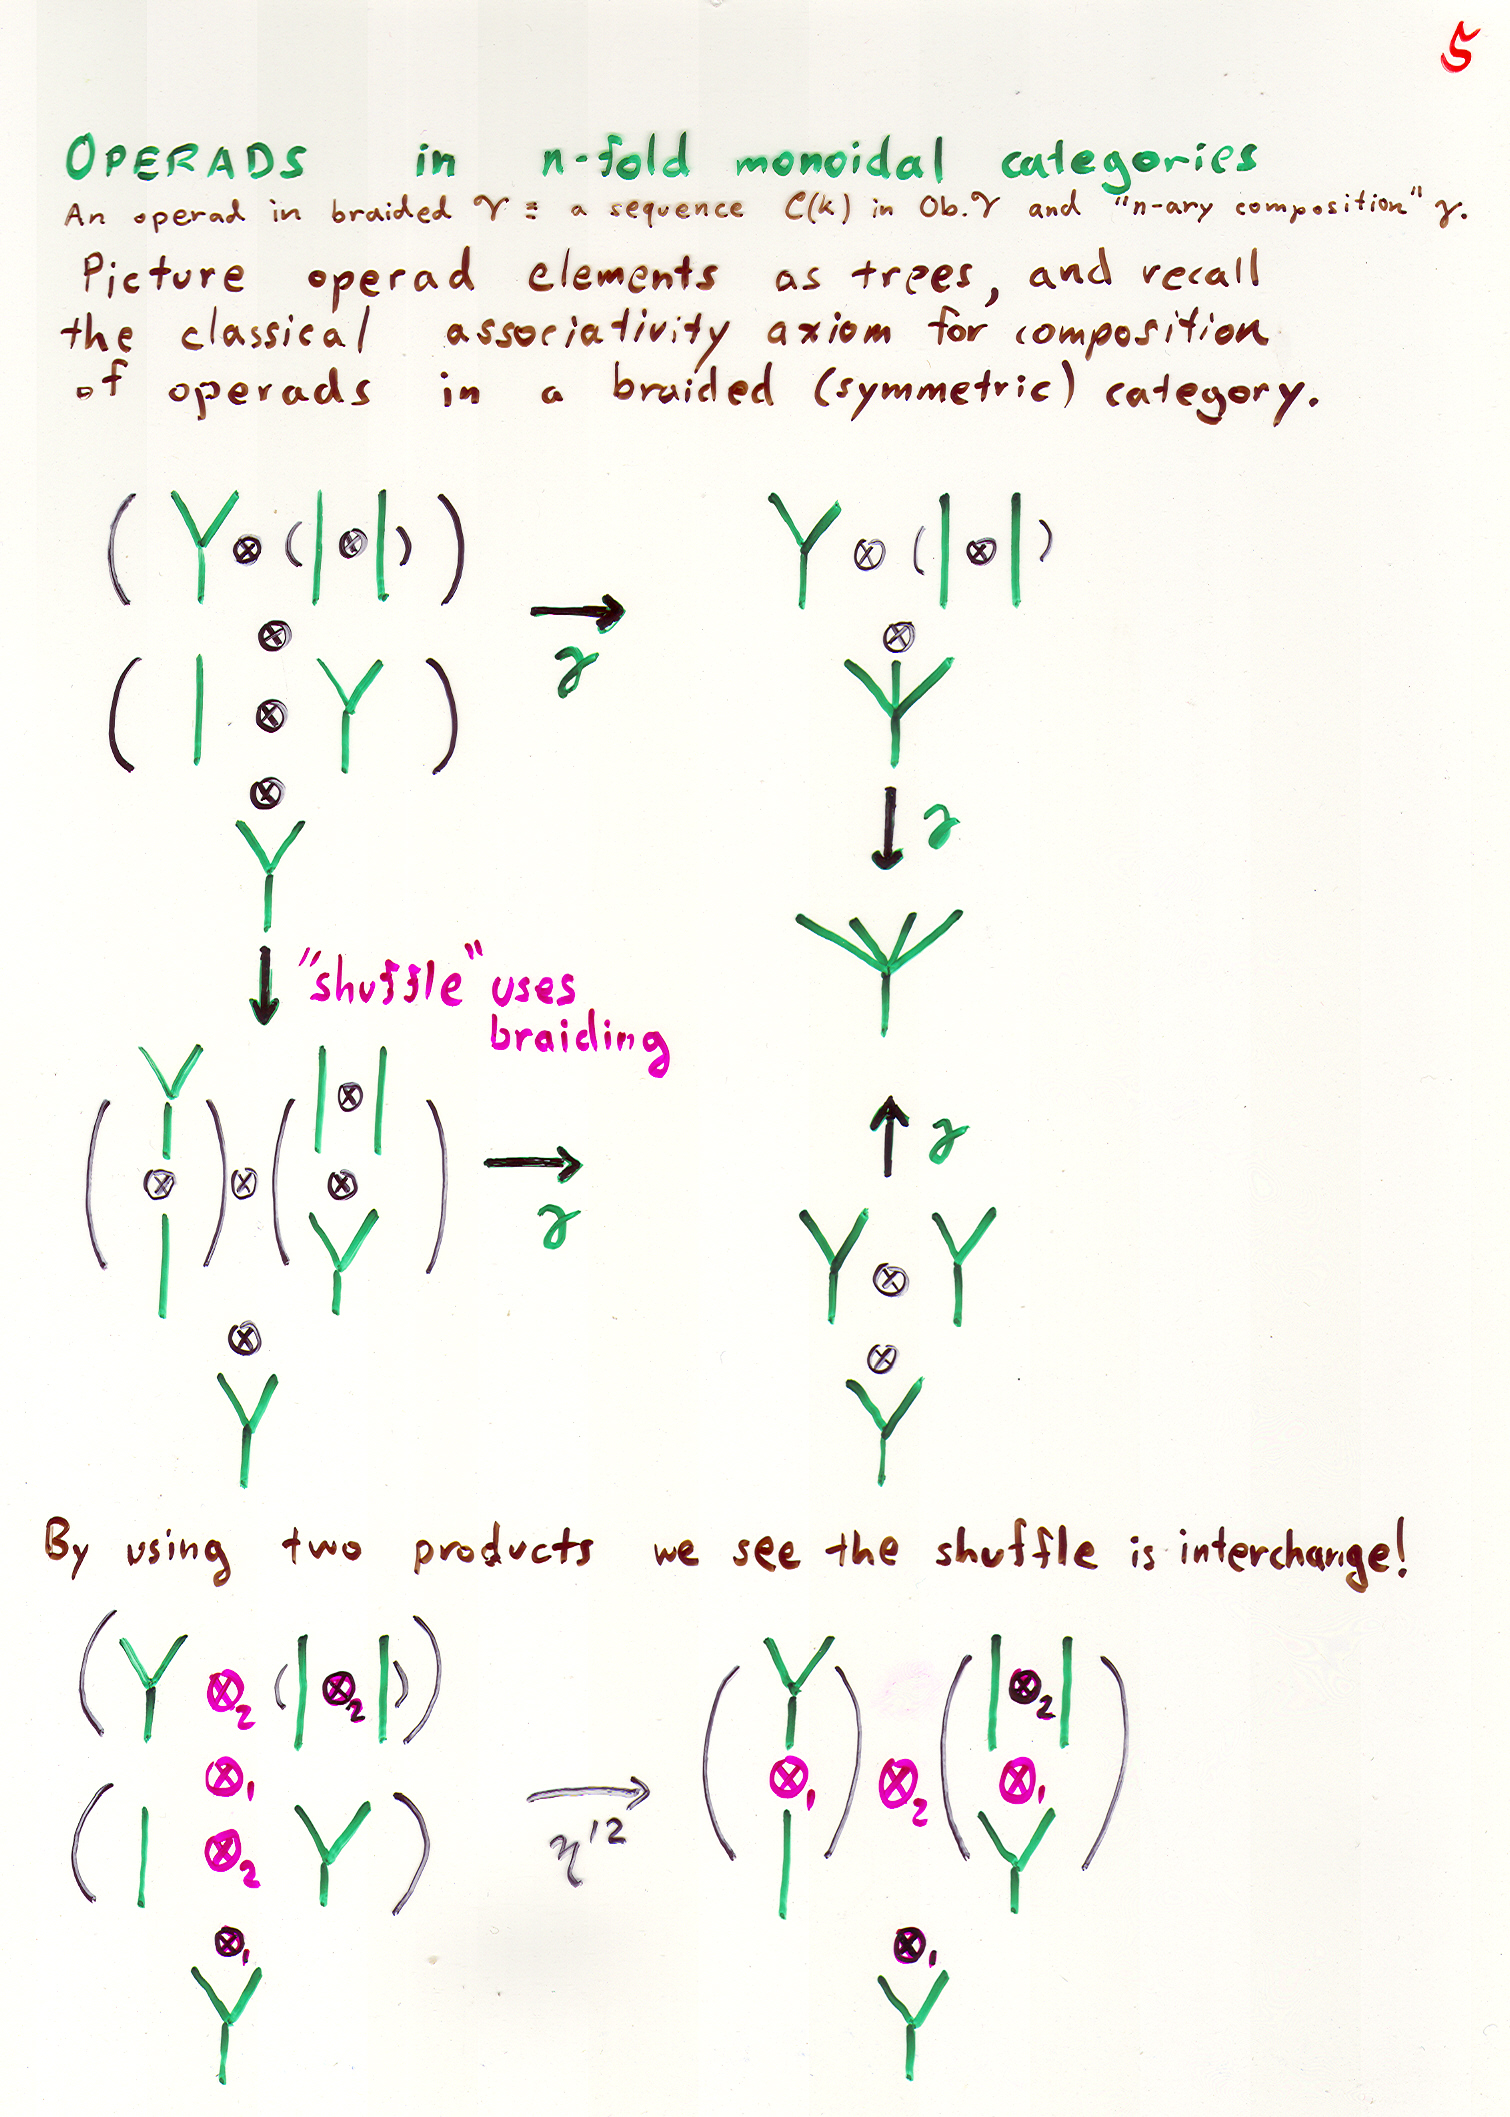 5
OPERADS in n-fold monoidal categories
An operad in braided 𝒱 ≡ a sequence C(k) in Ob.𝒱 and "n-ary composition" γ.
Picture operad elements as trees, and recall
the classical associativity axiom for composition
of operads in a braided (symmetric) category.
( ⊗ ( ⊗ ) ) ⊗ ( ⊗ )
⊗ → ⊗
γ
( ⊗ )
⊗
↓ γ
↓ "shuffle" uses
braiding
⊗
↑ γ
( ⊗ ) ⊗ ( ⊗ ) →
γ
⊗
⊗ ⊗
By using two products we see the shuffle is interchange!
( ⊗₂ ( ⊗₂ ) ) ⊗₂
⊗₁ ( ⊗₁ ) ⊗₂ ( ⊗₁ )
→
η¹²
( ⊗₂ )
⊗₁ ⊗₁